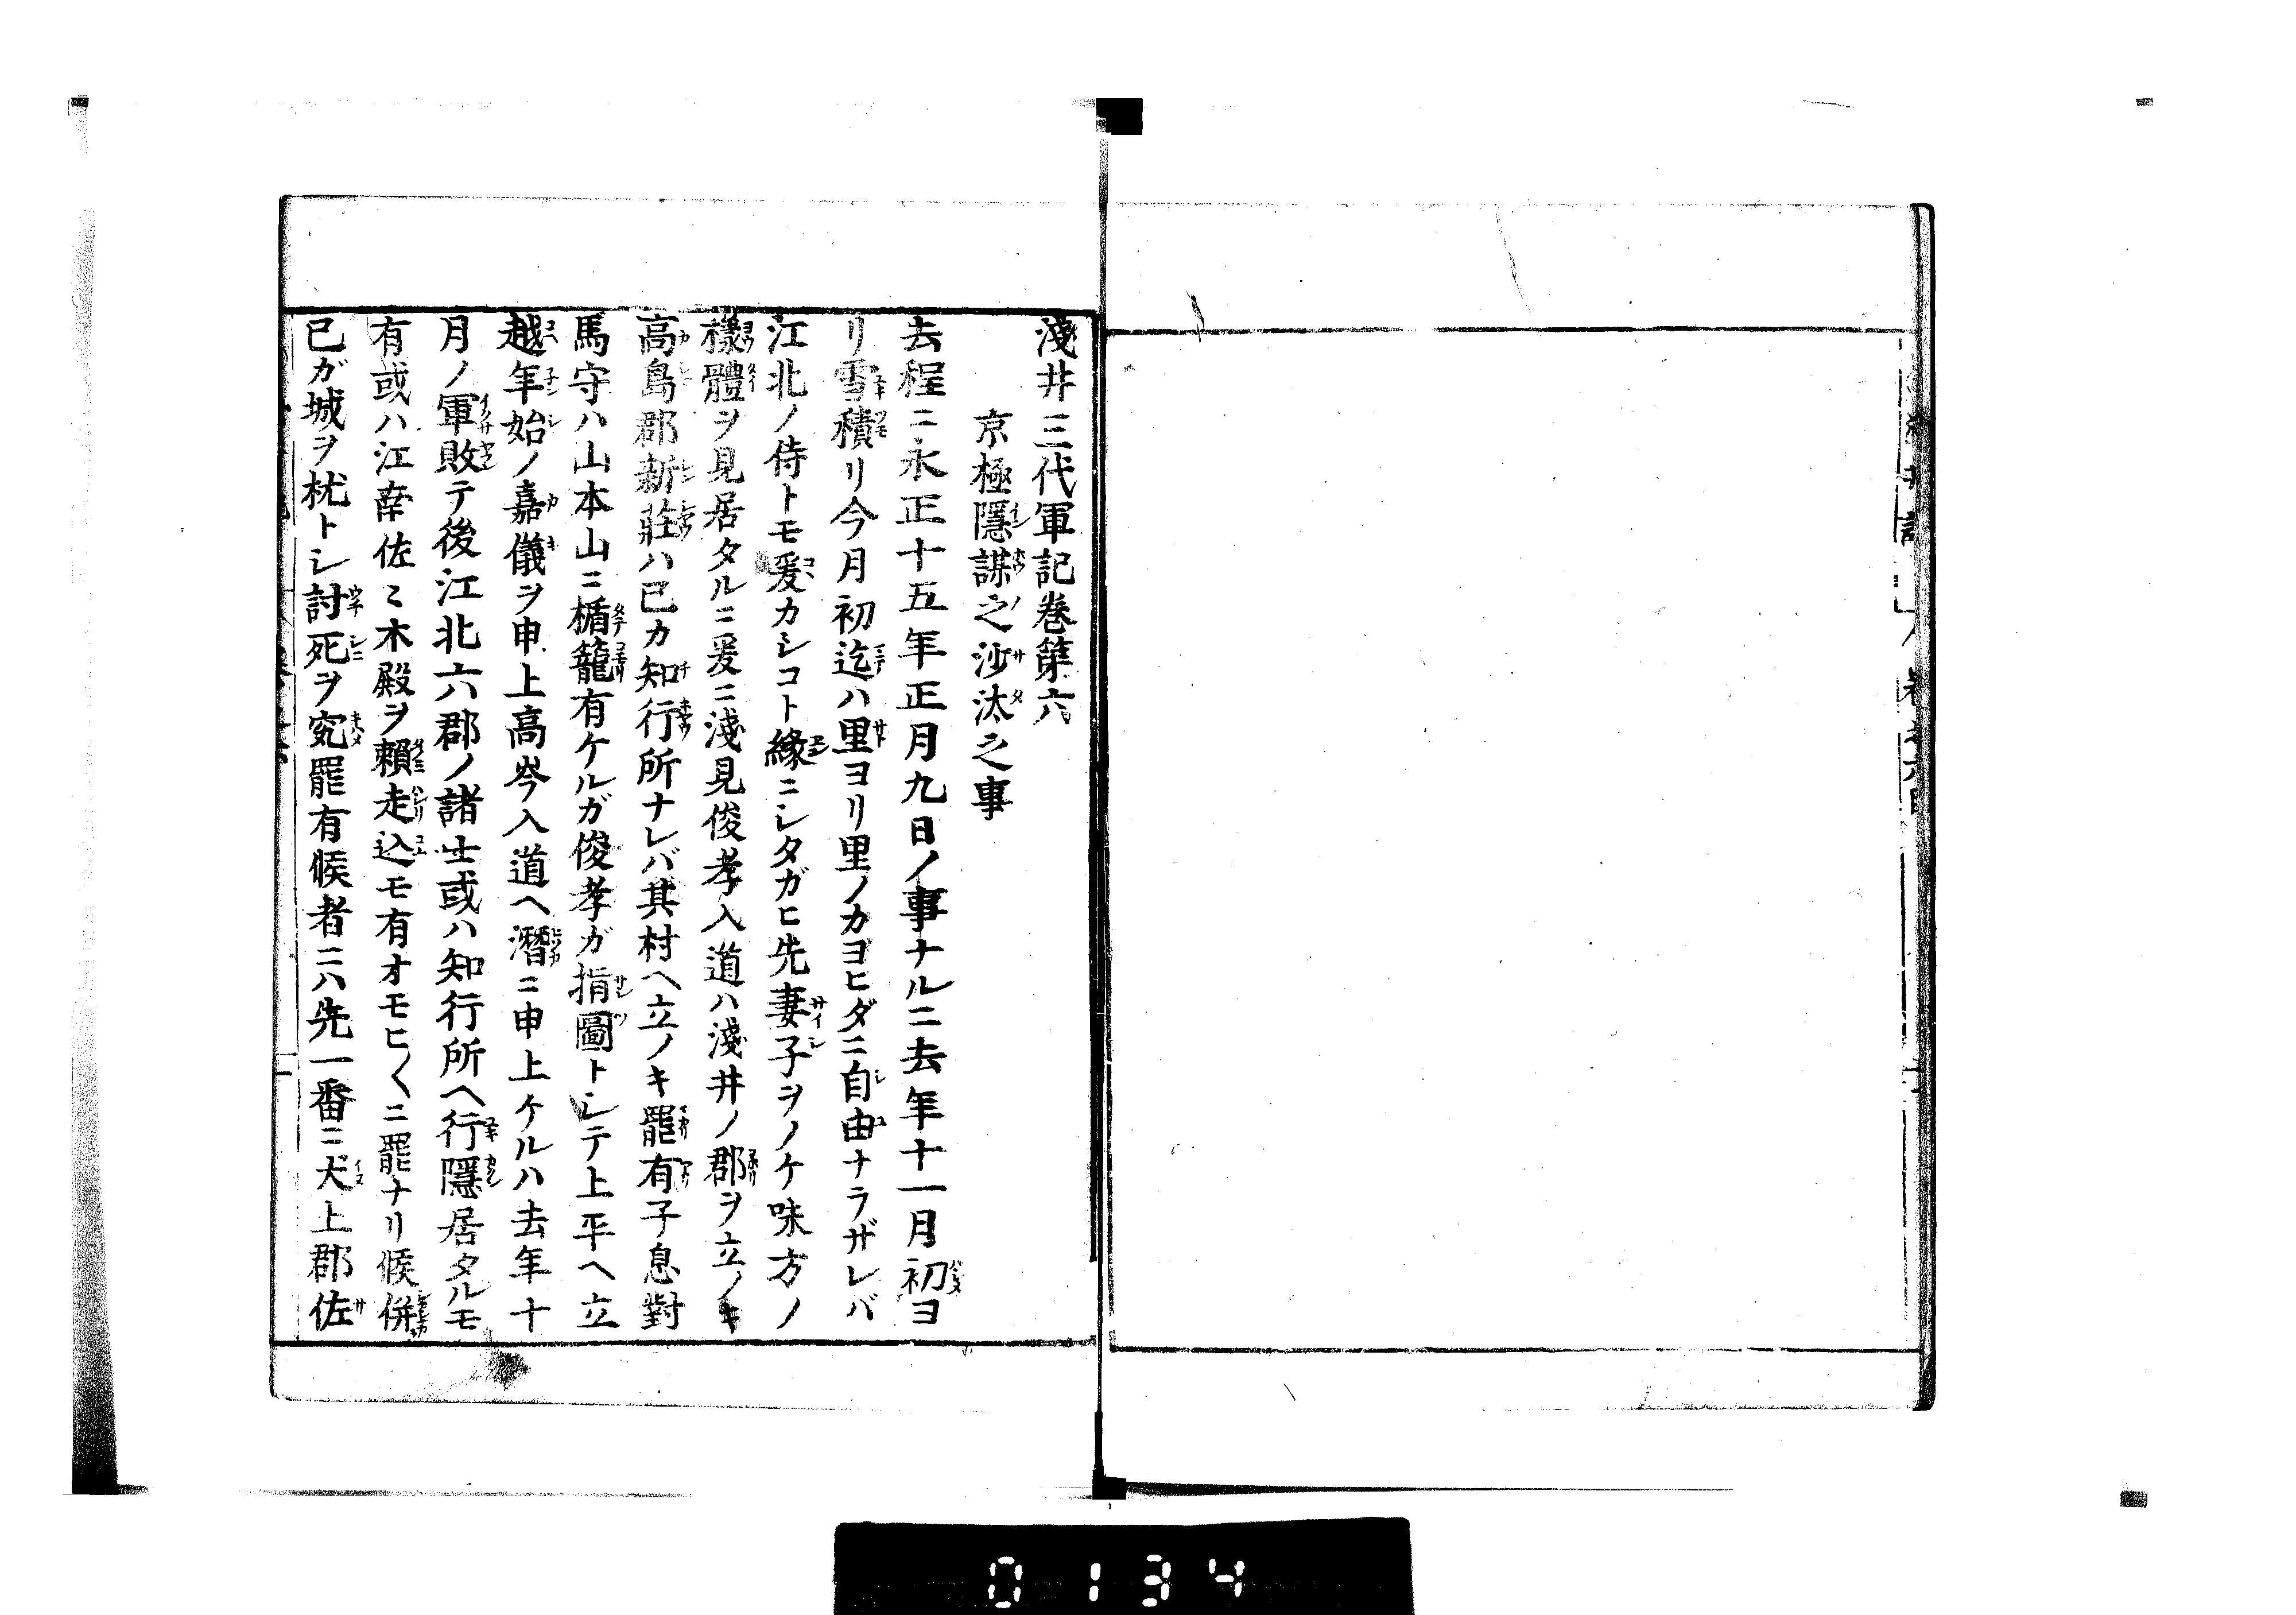 淺井三代軍記巻第六
京極隱謀之沙汰之事
去程ニ永正十五年正月九日ノ事ナルニ去年十一月初ヨ
リ雪積リ今月初迄ハ里ヨリ里ノカヨヒダニ自由ナラザレバ
江北ノ侍トモ爰カシコト緣ニシタガヒ先妻子ヲノケ味方ノ
樣體ヲ見居タルニ爰ニ淺見俊孝入道ハ淺井ノ郡ヲ立ノキ
高島郡新莊ハ已カ知行所ナレバ其村ヘ立ノキ罷有子息對
馬守ハ山本山ニ楯籠有ケルガ俊孝ガ指圖トシテ上平ヘ立
越年始ノ嘉儀ヲ申上高岑入道ヘ潛ニ申上ケルハ去年十
月ノ軍敗テ後江北六郡ノ諸士或ハ知行所ヘ行隱居タルモ
有或ハ江南佐々木殿ヲ賴走込モ有オモヒ〱ニ罷ナリ候併
已ガ城ヲ枕トシ討死ヲ究罷有候者ニハ先一番ニ犬上郡佐
0134